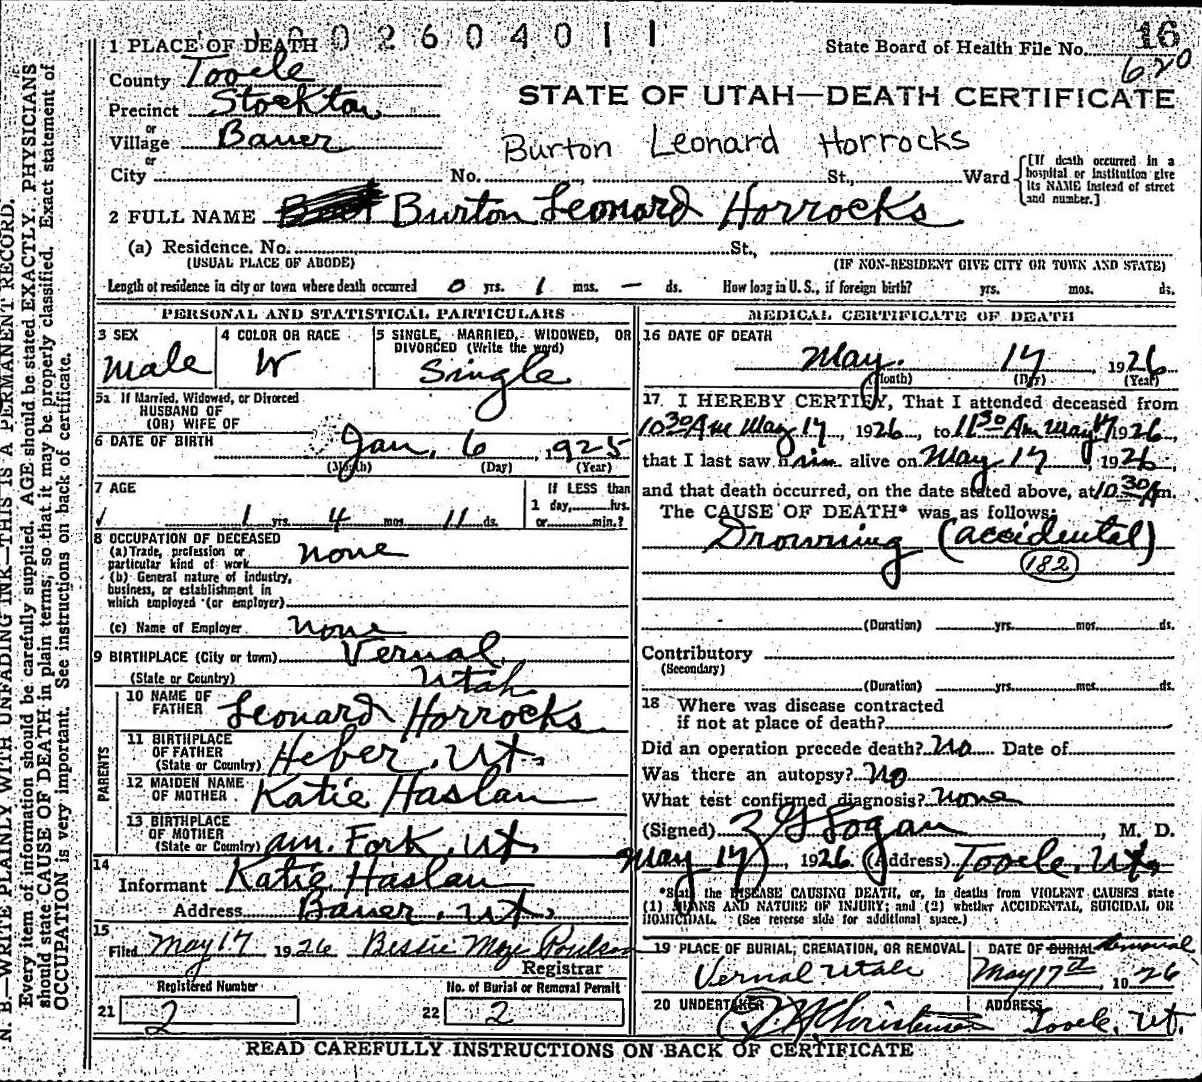 1002604011
16
State Board of Health File No.
620
1 PLACE OF DEATH
County Tooele
Precinct Stockton
or
Village Bauer
or
City No. St., Ward
STATE OF UTAH—DEATH CERTIFICATE
Burton Leonard Horrocks
[If death occurred in a hospital or institution give its NAME instead of street and number.]
2 FULL NAME Burton Leonard Horrocks
(a) Residence. No. St.,
(USUAL PLACE OF ABODE) (IF NON-RESIDENT GIVE CITY OR TOWN AND STATE)
Length of residence in city or town where death occurred 0 yrs. 1 mos. — ds. How long in U. S., if foreign birth? yrs. mos. ds.
PERSONAL AND STATISTICAL PARTICULARS
3 SEX
Male
4 COLOR OR RACE
W
5 SINGLE, MARRIED, WIDOWED, OR
DIVORCED (Write the word)
Single
5a If Married, Widowed, or Divorced
HUSBAND OF
(OR) WIFE OF
6 DATE OF BIRTH Jan. 6, 1925
(Month) (Day) (Year)
7 AGE
1 yrs. 4 mos. 11 ds.
If LESS than
1 day, hrs.
or min.?
8 OCCUPATION OF DECEASED
(a) Trade, profession or
particular kind of work none
(b) General nature of industry,
business, or establishment in
which employed (or employer)
(c) Name of Employer none
9 BIRTHPLACE (City or town) Vernal,
(State or Country) Utah
PARENTS
10 NAME OF
FATHER Leonard Horrocks
11 BIRTHPLACE
OF FATHER
(State or Country) Heber, Ut.
12 MAIDEN NAME
OF MOTHER Katie Haslam
13 BIRTHPLACE
OF MOTHER
(State or Country) Am. Fork, Ut.
14
Informant Katie Haslam
Address Bauer, Ut.
15
Filed May 17 1926 Bessie May Poulson
Registrar
Registered Number
21 2
No. of Burial or Removal Permit
22 2
MEDICAL CERTIFICATE OF DEATH
16 DATE OF DEATH
May 17, 1926
(Month) (Day) (Year)
17 I HEREBY CERTIFY, That I attended deceased from
10 30 Am May 17, 1926, to 11 30 Am May 17 1926,
that I last saw him alive on May 17, 1926,
and that death occurred, on the date stated above, at 10 30 Am.
The CAUSE OF DEATH* was as follows:
Drowning (accidental)
182
(Duration) yrs. mos. ds.
Contributory
(Secondary)
(Duration) yrs. mos. ds.
18 Where was disease contracted
if not at place of death?
Did an operation precede death? No Date of
Was there an autopsy? No
What test confirmed diagnosis? none
(Signed) , M. D.
May 17, 1926 (Address) Tooele, Ut.
*State the DISEASE CAUSING DEATH, or, in deaths from VIOLENT CAUSES state
(1) MEANS AND NATURE OF INJURY; and (2) whether ACCIDENTAL, SUICIDAL OR
HOMICIDAL. (See reverse side for additional space.)
19 PLACE OF BURIAL, CREMATION, OR REMOVAL
Vernal Utah
DATE OF BURIAL Removal
May 17th, 1926
20 UNDERTAKER
Christensen
ADDRESS
Tooele, Ut.
READ CAREFULLY INSTRUCTIONS ON BACK OF CERTIFICATE
N. B.—WRITE PLAINLY WITH UNFADING INK—THIS IS A PERMANENT RECORD.
Every item of information should be carefully supplied. AGE should be stated EXACTLY. PHYSICIANS
should state CAUSE OF DEATH in plain terms, so that it may be properly classified. Exact statement of
OCCUPATION is very important. See instructions on back of certificate.